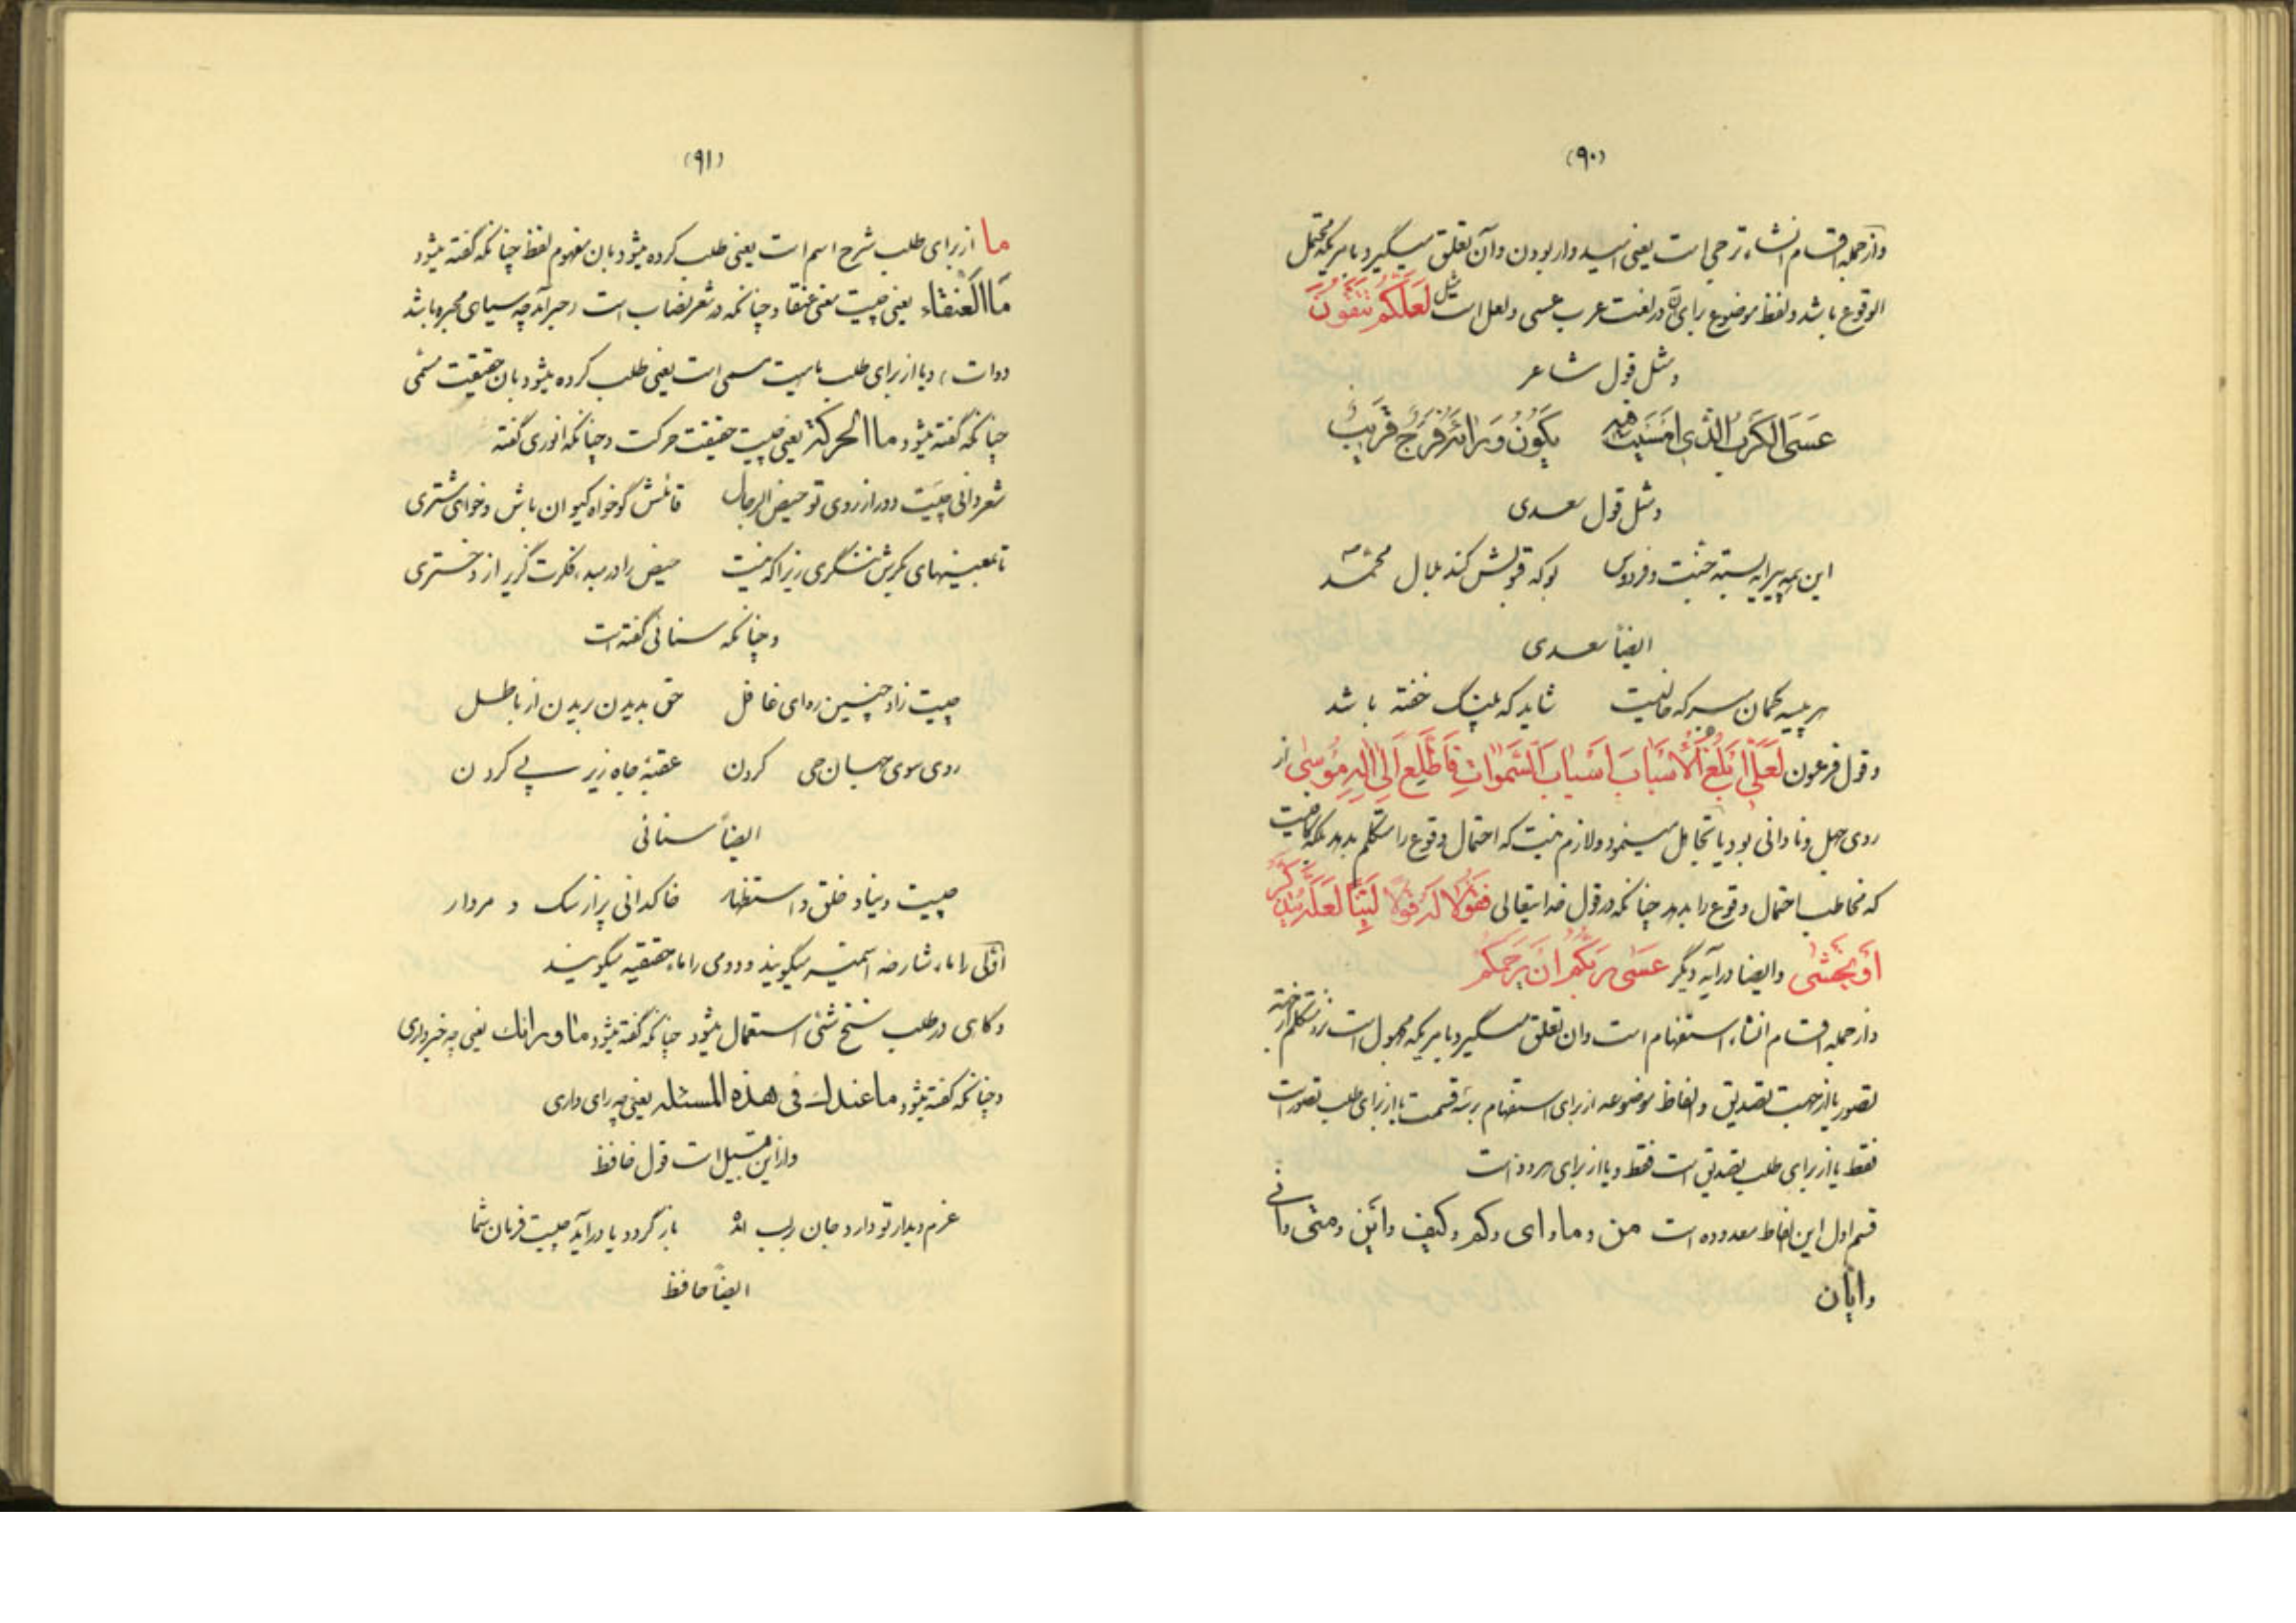 (۹۰)
و از جمله اقسام انشاء ترجی است یعنی امیدوار بودن و آن تعلق میگیرد بامریکه محتمل
الوقوع باشد و لفظ موضوع برای آن در لغت عرب عسی و لعل است مثل لَعَلَّكُمْ تَتَّقُونَ
و مثل قول شاعر
عَسَى الكَرْبُ الَّذِي اَمْسَيْتَ فيهِ يَكُونُ وَرائَهُ فَرَجٌ قَرِيبٌ
و مثل قول سعدی
این همه پیرایه بسته جنت و فردوس بو که قبولش کند بلال محمد
ایضاً سعدی
هر بیسه گمان مبر که خالیست شاید که پلنگ خفته باشد
و قول فرعون لَعَلّى اَبْلُغُ الْاَسْبابَ اَسْبابَ السَّمواتِ فَاَطَّلِعَ اِلى اِلهِ مُوسى از
روی جهل و نادانی بود یا تجاهل مینمود و لازم نیست که احتمال وقوع را متکلم بدهد بلکه
که مخاطب احتمال وقوع را بدهد چنانکه در قول خدایتعالی فَقُولا لَهُ قَوْلاً لَيِّناً لَعَلَّهُ يَتَذَكَّرُ
اَوْ يَخْشى و ایضا در آیه دیگر عَسى رَبُّكُمْ اَنْ يَرْحَمَكُمْ
و از جمله اقسام انشاء استفهام است و ان تعلق میگیرد بامریکه مجهول است نزد متکلم از جهة
تصور یا از جهت تصدیق و الفاظ موضوعه از برای استفهام بر سه قسمت یا از برای طلب تصور است
فقط یا از برای طلب تصدیق است فقط و یا از برای هر دو است
قسم اول این الفاظ معدوده است من و ما و ای و کم و کیف و این و متی و انی
و ایان
(۹۱)
ما از برای طلب شرح اسم است یعنی طلب کرده میشود بان مفهوم لفظ چنانکه گفته میشود
مَا الْعَنْقاء یعنی چیست معنی عنقا و چنانکه در شعر نصاب است (حبر آمد چه سیاهی محبره باشد
دوات) و یا از برای طلب ماهیت مسمی است یعنی طلب کرده میشود بان حقیقت مسمی
چنانکه گفته میشود ما الحركة یعنی چیست حقیقت حرکت و چنانکه انوری گفته
شعر دانی چیست دور از روی تو حیض الرجال قائلش گو خواه کیوان باش و خواه مشتری
تا بمعنیهای بکرش ننگری زیرا که نیست حیض را در مبدء فکرت گزیر از دختری
و چنانکه سنائی گفته است
چیست زاد چنین ره ای غافل حق بدیدن بریدن از باطل
روی سوی جهان حی کردن عقبهٔ جاه زیر پی کردن
ایضاً سنائی
چیست دنیا و خلق و استظهار خاکدانی پر از سگ و مردار
اوّلی را ماء شارحه اسمیّه میگویند و دومی را ماء حقیقیه میگویند
و گاهی در طلب سنخ شئی استعمال میشود چنانکه گفته میشود ما ورائك یعنی چه خبر داری
و چنانکه گفته میشود ما عندك فی هذه المسئله یعنی چه رای داری
و از این قبیل است قول حافظ
عزم دیدار تو دارد جان بر لب آمده باز گردد یا در آید چیست فرمان شما
ایضاً حافظ